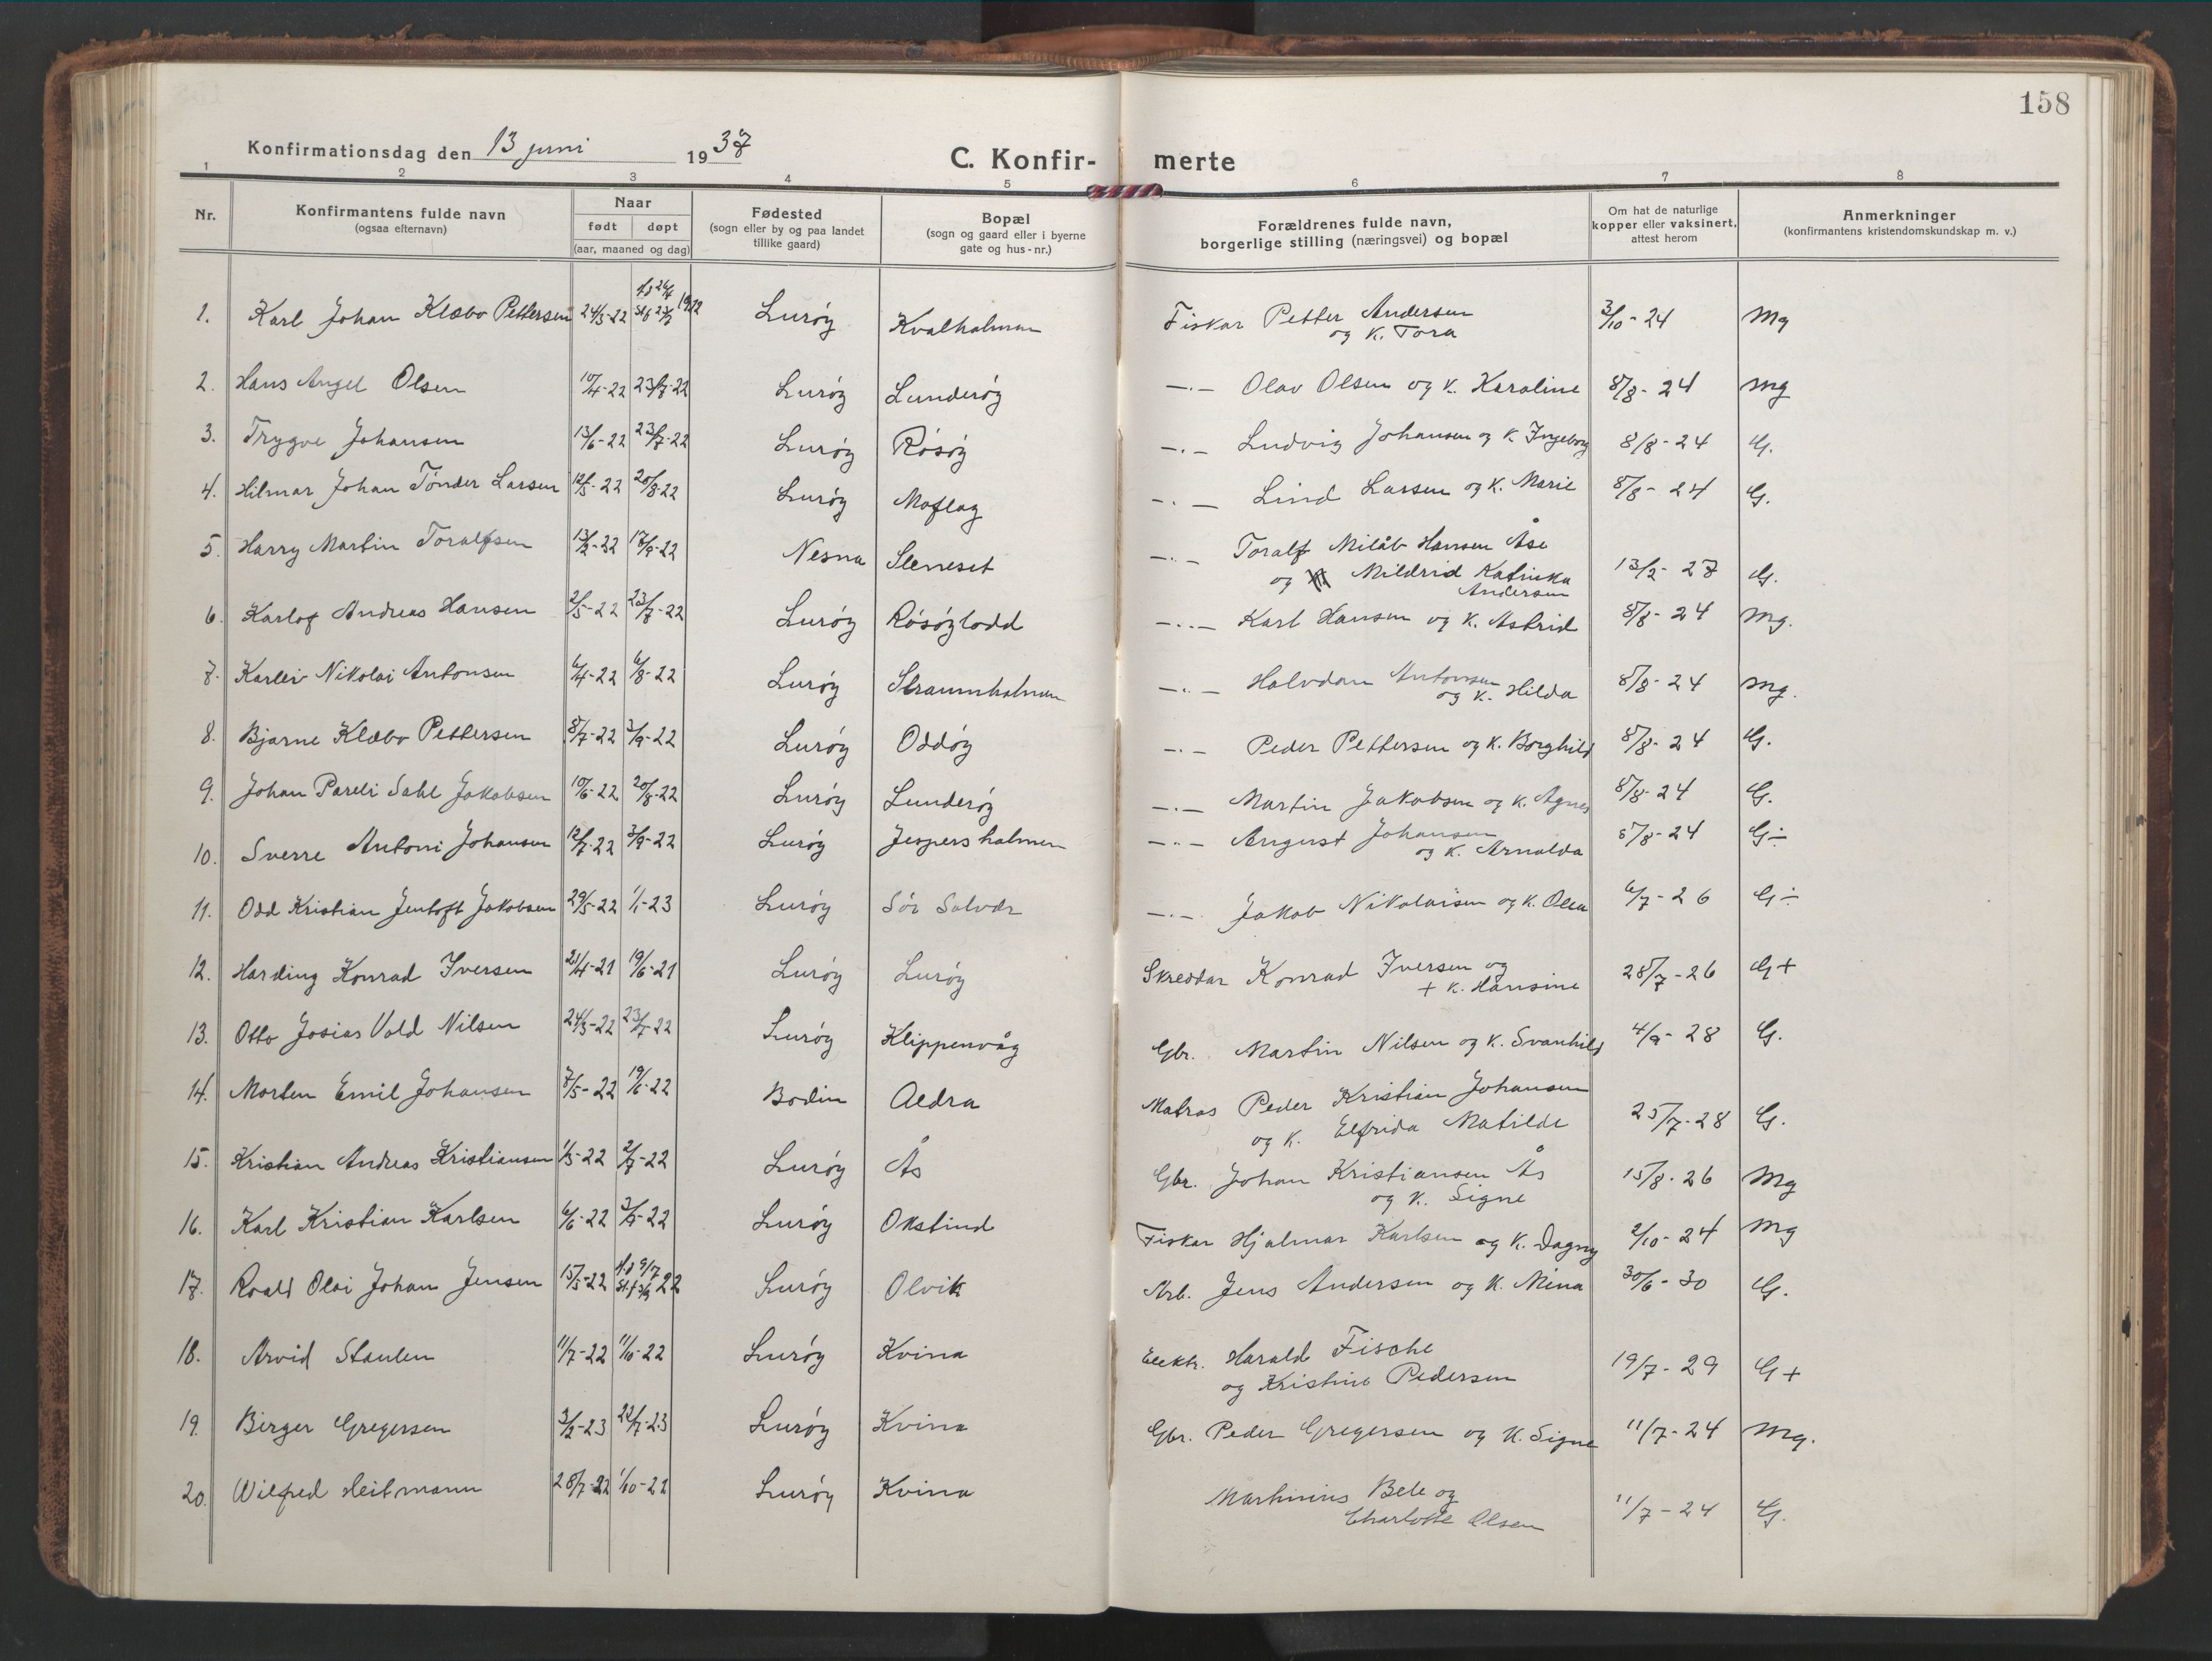 158
Konfirmationsdag den 13 juni 1937
C. Konfir- merte
1 2 3 4 5 6 7 8
Nr.
Konfirmantens fulde navn
(ogsaa efternavn)
Naar
født døpt
(aar, maaned og dag)
Fødested
(sogn eller by og paa landet
tillike gaard)
Bopæl
(sogn og gaard eller i byerne
gate og hus-nr.)
Forældrenes fulde navn,
borgerlige stilling (næringsvei) og bopæl
Om hat de naturlige
kopper eller vaksinert,
attest herom
Anmerkninger
(konfirmantens kristendomskundskap m. v.)
1. Karl Johan Klæbo Pettersen 24/3-22 1922 Lurøy Kvalholmen Fiskar Petter Andersen 3/10-24 Mg
og k. Tora
2. Hans Angel Olsen 10/4-22 23/7-22 Lurøy Lunderøy —.— Olav Olsen og k. Karoline 8/8-24 Mg
3. Trygve Johansen 13/6-22 23/7-22 Lurøy Røsøy —.— Ludvig Johansen og k. Ingeborg 8/8-24 G.
4. Hilmar Johan Tønder Larsen 12/5-22 20/8-22 Lurøy Moflag —.— Lind Larsen og k. Marie 8/8-24 G.
5. Harry Martin Toralfsen 17/9-22 Nesna Sleneset —.— Toralf Milåb Hansen Åse 13/2-27 G.
og Mildrid Katinka
Andersen
6. Karlof Andreas Hansen 2/5-22 23/7-22 Lurøy Røsøylodd —.— Karl Hansen og k. Astrid 8/8-24 Mg.
7. Karleiv Nikolai Antonsen 6/4-22 6/8-22 Lurøy Straumholmen —.— Halvdan Antonsen 8/8-24 Mg.
og k. Hilda
8. Bjarne Klæbo Pettersen 8/7-22 3/9-22 Lurøy Oddøy —.— Peder Pettersen og k. Borghild 8/8-24 G.
9. Johan Pareli Dahl Jakobsen 10/6-22 20/8-22 Lurøy Lunderøy —.— Martin Jakobsen og k. Agnes 8/8-24 G.
10. Sverre Antoni Johansen 12/7-22 3/9-22 Lurøy Jespersholmen —.— August Johansen 8/8-24 G÷
og k. Arnolda
11. Odd Kristian Jentoft Jakobsen 29/5-22 1/1-23 Lurøy Sør Solvær —.— Jakob Nikolaisen og k. Olea 6/7-26 G÷
12. Harding Konrad Iversen 21/4-21 19/6-21 Lurøy Lurøy Skreddar Konrad Iversen og 28/7-26 G+
+ k. Hansine
13. Otto Josias Vold Nilsen 24/3-22 23/7-22 Lurøy Klippenvåg Gbr. Martin Nilsen og k. Svanhild 4/9-28 G.
14. Morten Emil Johansen 7/5-22 19/6-22 Bodin Aldra Matros Peder Kristian Johansen 25/7-28 G.
og k. Elfrida Matilde
15. Kristian Andreas Kristiansen 1/5-22 2/7-22 Lurøy Ås Gbr. Johan Kristiansen Ås 15/8-26 Mg
og k. Signe
16. Karl Kristian Karlsen 6/6-22 3/9-22 Lurøy Okstind Fiskar Hjalmar Karlsen og k. Dagny 2/10-24 Mg
17. Roald Olai Johan Jensen 15/5-22 22 Lurøy Olvik Arb. Jens Andersen og k. Mina 30/6-30 G.
18. Arvid Staulen 11/7-22 11/10-22 Lurøy Kvina Elektr. Harald Fische 19/7-29 G+
og Kristine Pedersen
19. Birger Gregersen 3/2-23 22/7-23 Lurøy Kvina Gbr. Peder Gregersen og k. Signe 11/7-24 Mg.
20. Wilfred Heitmann 28/7-22 1/10-22 Lurøy Kvina Martinius Bele og 11/7-24 G.
Charlotte Olsen